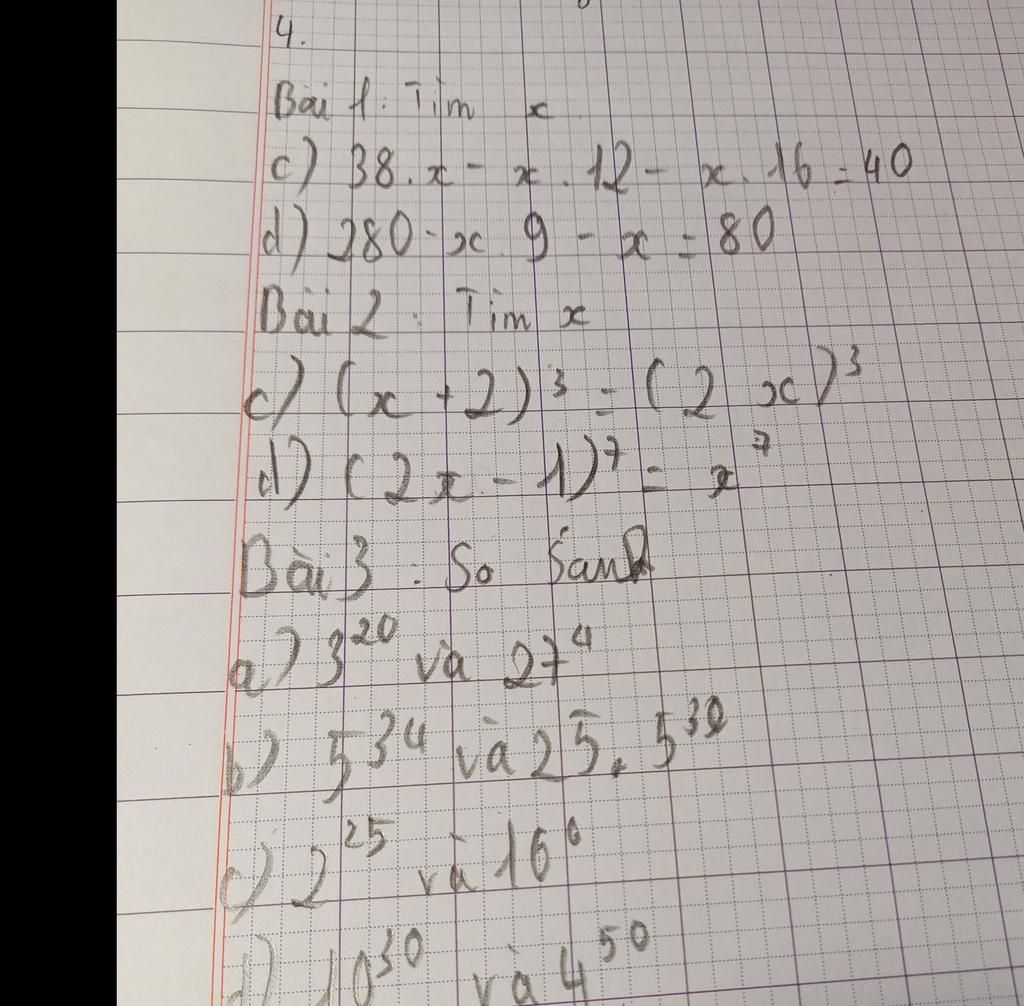 4.
Bài 1: Tìm x
c) 38.x - x.12 - x.16 = 40
d) 280 - x.9 - x = 80
Bài 2: Tìm x
c) (x + 2)³ = (2 x)³
d) (2x - 1)⁷ = x⁷
Bài 3: So sánh
a) 3²⁰ và 27⁴
b) 5³⁴ và 25.5³⁰
c) 2²⁵ và 16⁶
d) 10³⁰ và 4⁵⁰